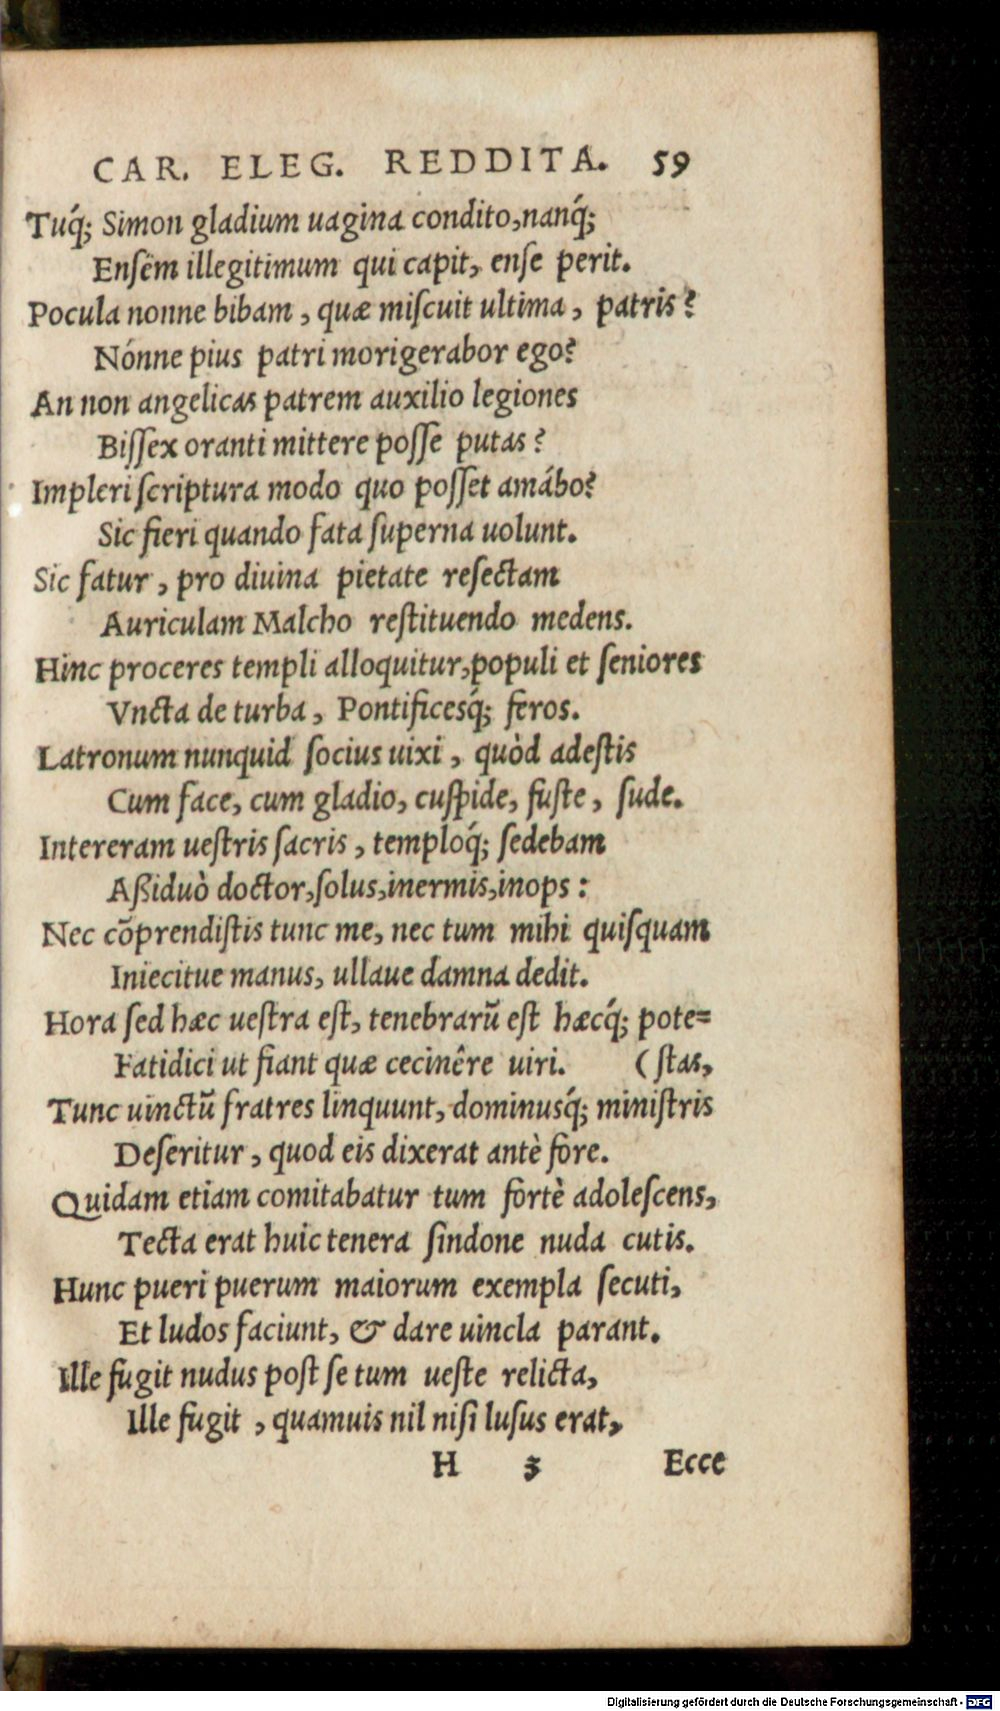 CAR. ELEG. REDDITA. 59
Tuq́; Simon gladium uagina condito,nanq́;
Ensem illegitimum qui capit, ense perit.
Pocula nonne bibam , quæ miscuit ultima , patris ?
Nónne pius patri morigerabor ego?
An non angelicas patrem auxilio legiones
Bissex oranti mittere posse putas ?
Impleri scriptura modo quo posset amábo?
Sic fieri quando fata superna uolunt.
Sic fatur , pro diuina pietate resectam
Auriculam Malcho restituendo medens.
Hinc proceres templi alloquitur,populi et seniores
Vncta de turba , Pontificesq́; feros.
Latronum nunquid socius uixi , quòd adestis
Cum face, cum gladio, cuspide, fuste , sude.
Intereram uestris sacris , temploq́; sedebam
Aßiduò doctor,solus,inermis,inops :
Nec cõprendistis tunc me, nec tum mihi quisquam
Iniecitue manus, ullaue damna dedit.
Hora sed hæc uestra est, tenebrarũ est hæcq́; pote=
Fatidici ut fiant quæ cecinêre uiri. (stas,
Tunc uinctũ fratres linquunt, dominusq́; ministris
Deseritur , quod eis dixerat antè fore.
Quidam etiam comitabatur tum fortè adolescens,
Tecta erat huic tenera sindone nuda cutis.
Hunc pueri puerum maiorum exempla secuti,
Et ludos faciunt, & dare uincla parant.
Ille fugit nudus post se tum ueste relicta,
Ille fugit , quamuis nil nisi lusus erat,
H 3 Ecce
Digitalisierung gefördert durch die Deutsche Forschungsgemeinschaft - DFG